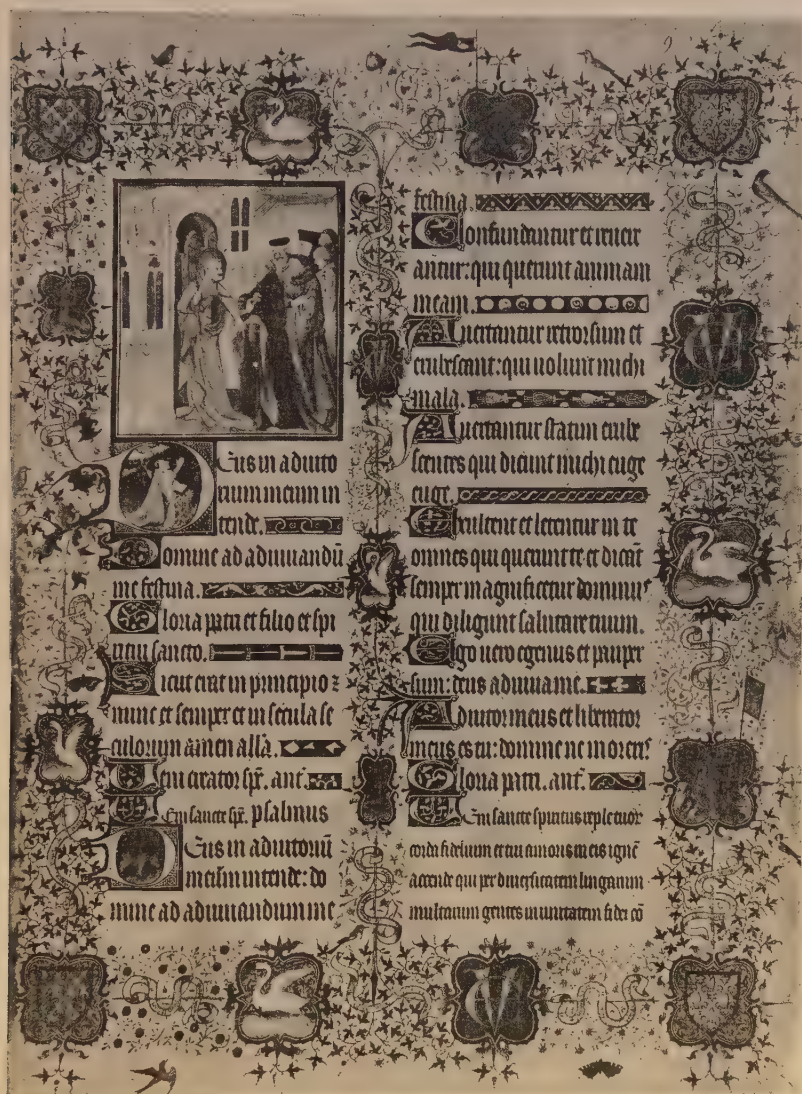 Deus in adiuto
rium meum in
tende.
Domine ad adiuuandū
me festina.
Gloria patri et filio et spi
ritui sancto.
Sicut erat in principio ⁊
nunc et semper et in secula se
culorum amen alla.
Veni creator sp̄c. ant̄.
Veni sancte sp̄c. psalmus
Deus in adiutoriū
meum intende: do
mine ad adiuuandum me
festina.
Confundantur et reuere
antur: qui querunt animam
meam.
Auertantur retrorsum et
erubescant: qui uolunt michi
mala.
Auertantur statim erube
scentes qui dicunt michi euge
euge.
Exultent et letentur in te
omnes qui querunt te et dicāt
semper magnificetur dominus
qui diligunt salutare tuum.
Ego uero egenus et pauper
sum: deus adiuua me.
Adiutor meus et liberator
meus es tu: domine ne moreris
Gloria patri. ant̄.
Veni sancte spiritus reple tuor
corda fidelium et tui amoris in eis ignē
accende qui per diuersitatem linguarum
multarum gentes in unitatem fidei cō